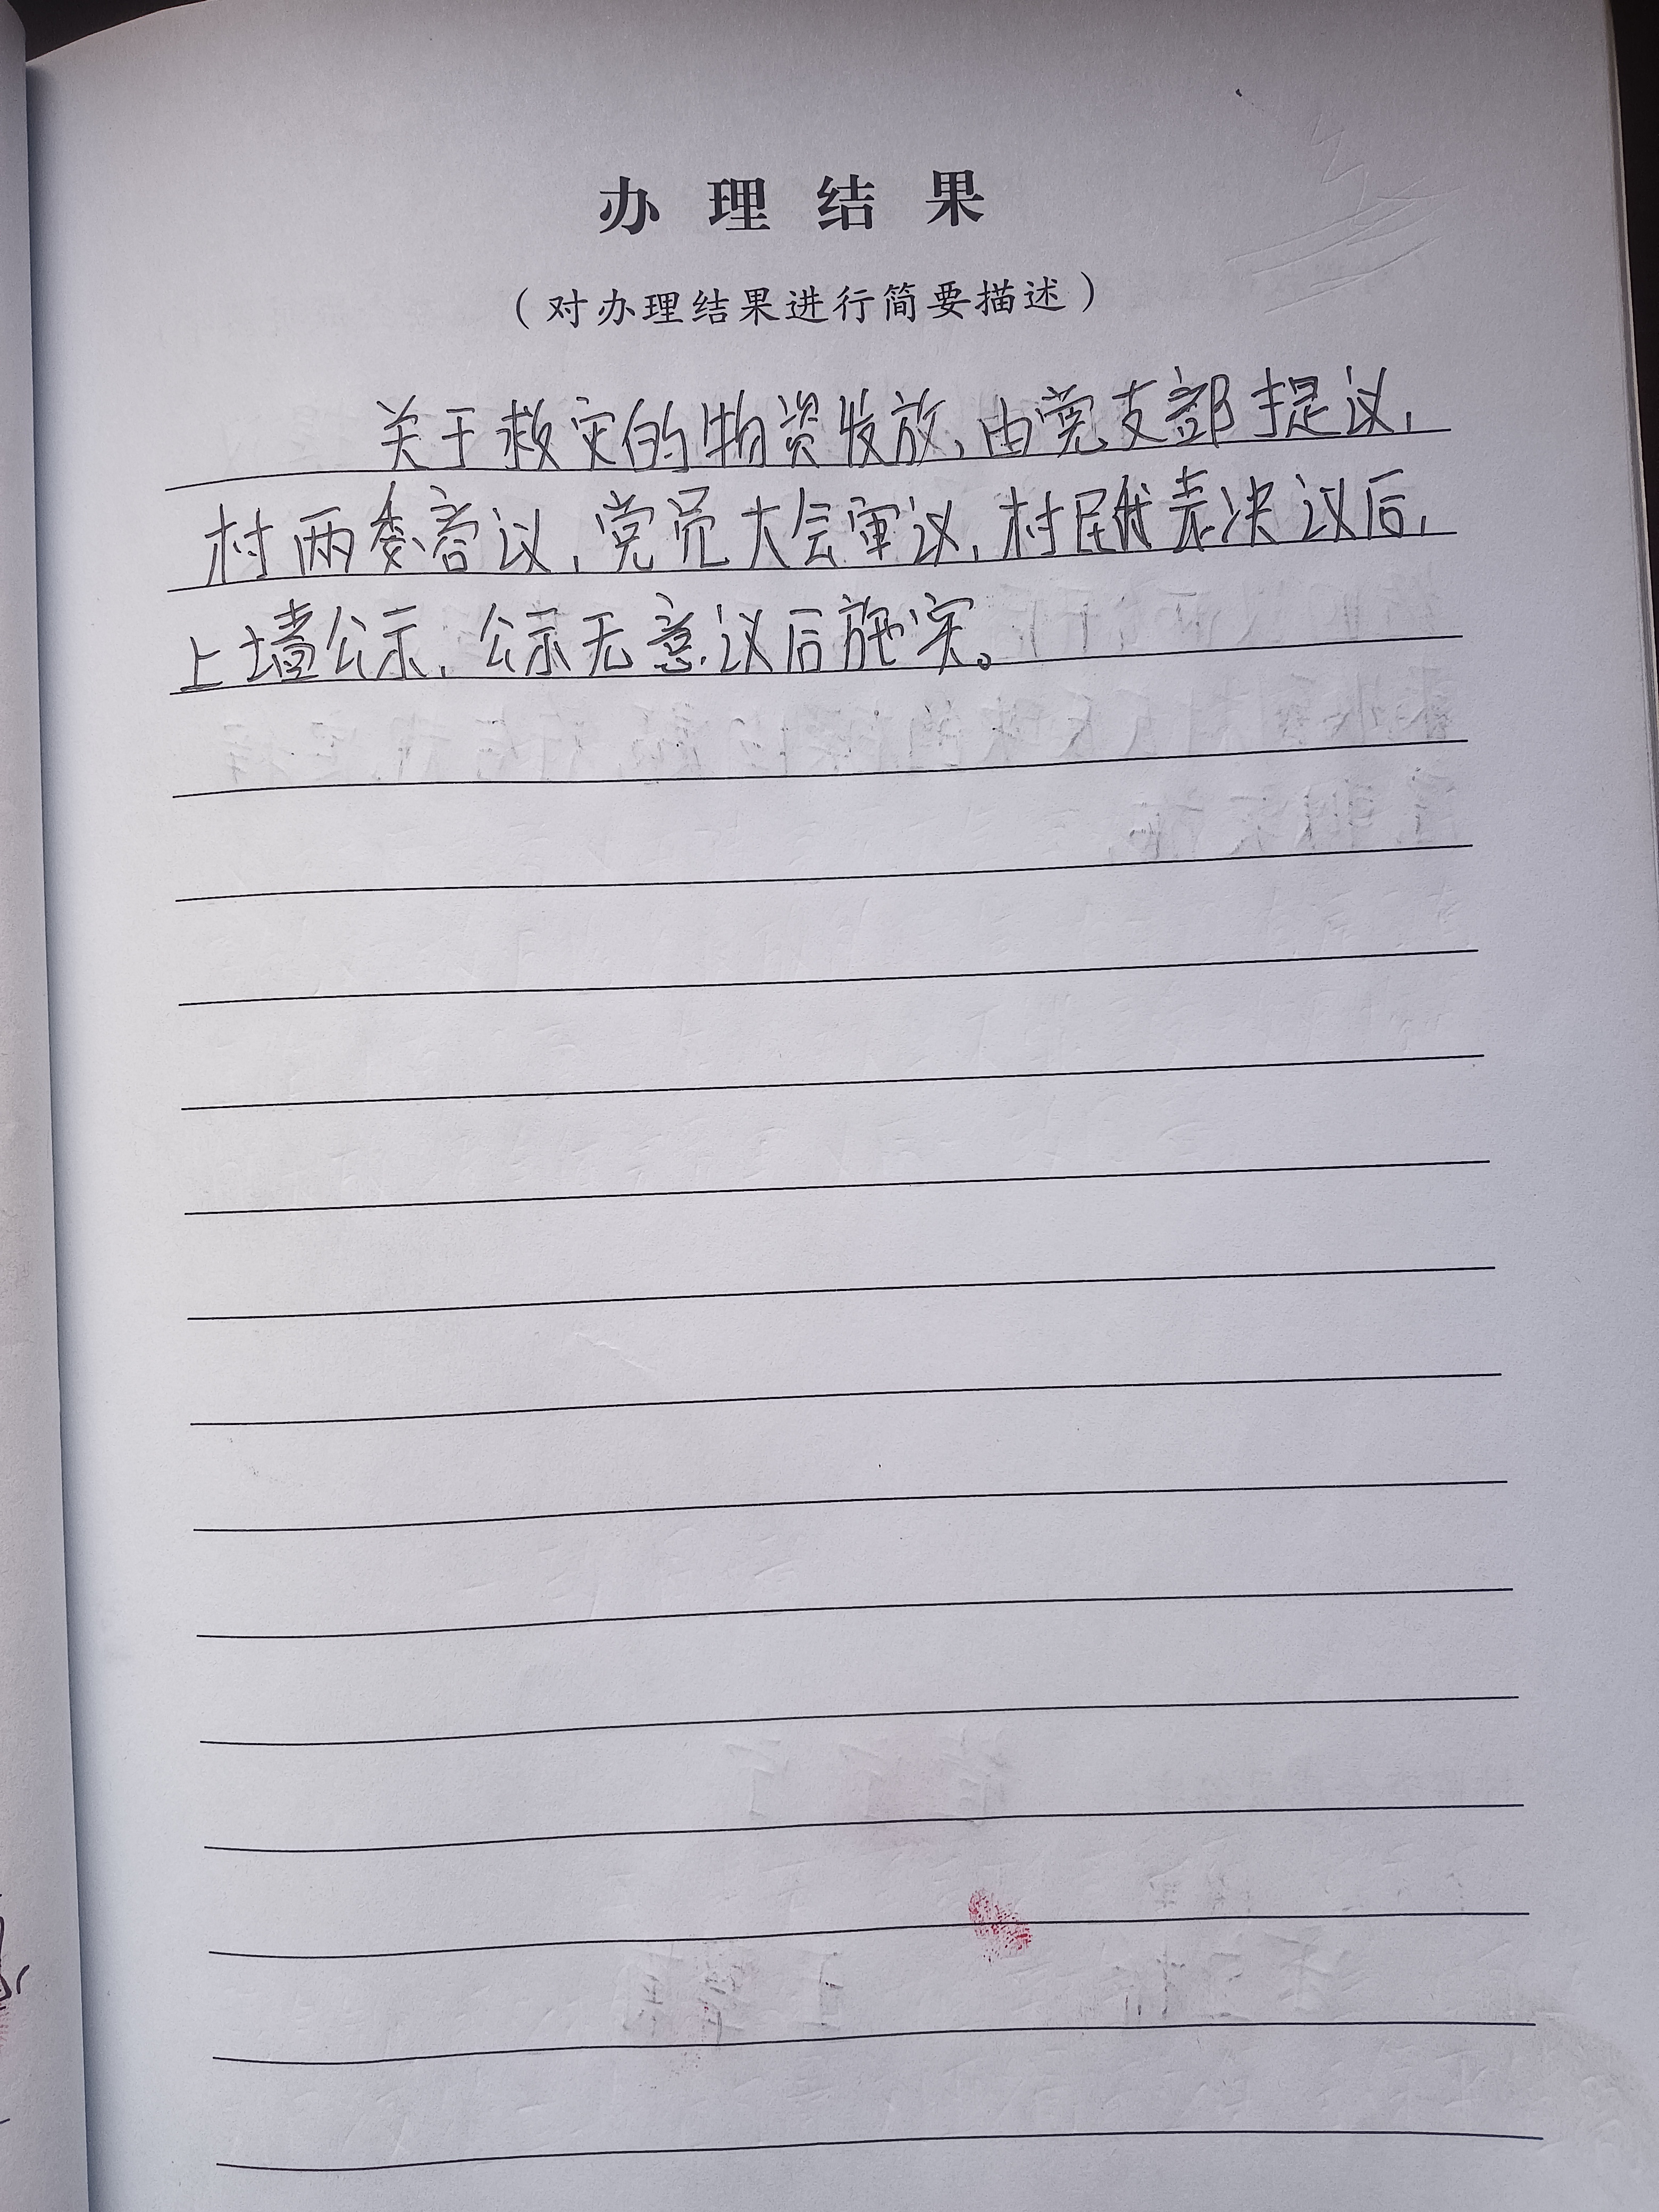 办理结果
（对办理结果进行简要描述）
关于救灾的物资发放，由党支部提议，
村两委商议，党员大会审议，村民代表决议后，
上墙公示，公示无意议后施实。